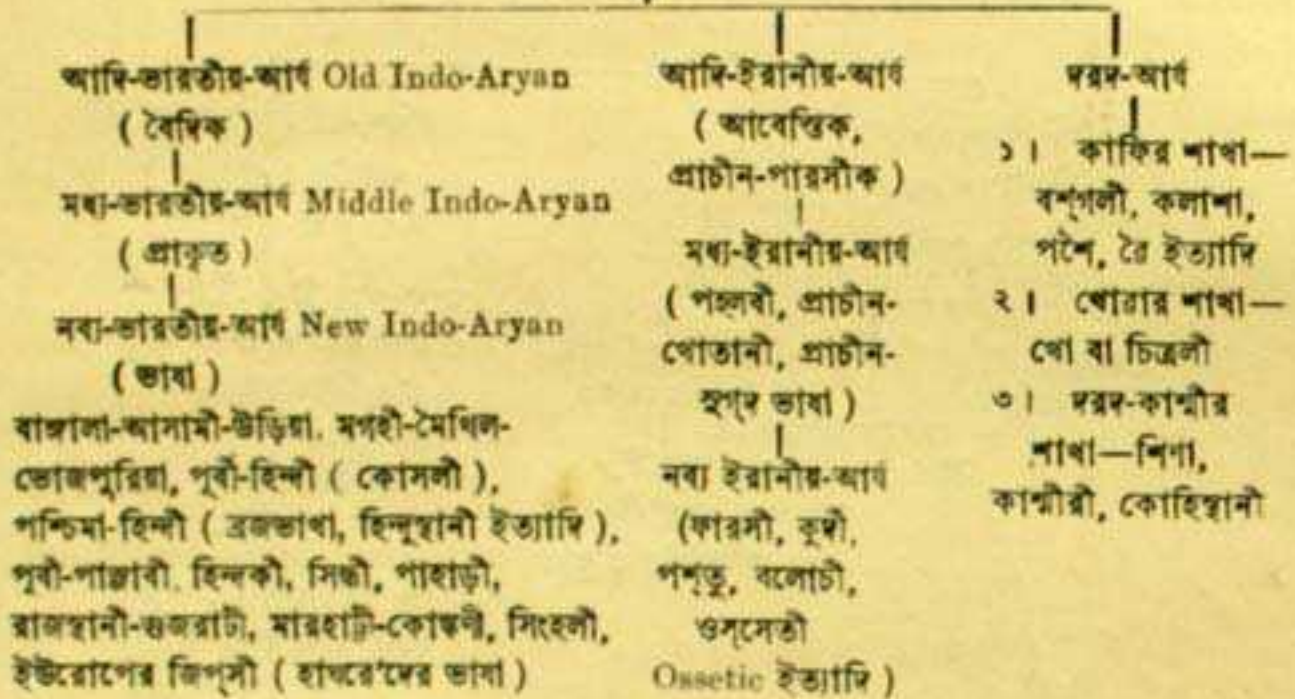 আদি-ভারতীয়-আর্য Old Indo-Aryan
( বৈদিক )
মধ্য-ভারতীয়-আর্য Middle Indo-Aryan
( প্রাকৃত )
নব্য-ভারতীয়-আর্য New Indo-Aryan
( ভাষা )
বাঙ্গালা-আসামী-উড়িয়া. মগহী-মৈথিল-
ভোজপুরিয়া, পূর্বী-হিন্দী ( কোসলী ),
পশ্চিমা-হিন্দী ( ব্রজভাখা, হিন্দুস্থানী ইত্যাদি ),
পূর্বী-পাঞ্জাবী. হিন্দকী, সিন্ধী, পাহাড়ী,
রাজস্থানী-গুজরাটী, মারহাট্টি-কোঙ্কণী, সিংহলী,
ইউরোপের জিপ্‌সী ( হাঘরে'দের ভাষা )
আদি-ইরানীয়-আর্য
( আবেস্তিক,
প্রাচীন-পারসীক )
মধ্য-ইরানীয়-আর্য
( পহ্লবী, প্রাচীন-
খোতানী, প্রাচীন-
সুগ্‌দ ভাষা )
নব্য ইরানীয়-আর্য
(ফারসী, কুর্দী,
পশ্‌তু, বলোচী,
ওস্‌সেতী
Ossetic ইত্যাদি )
দরদ-আর্য
১। কাফির শাখা—
বশ্‌গলী, কলাশা,
পশৈ, রৈ ইত্যাদি
২। খোৱার শাখা—
খো বা চিত্রলী
৩। দরদ-কাশ্মীর
শাখা—শিণা,
কাশ্মীরী, কোহিস্থানী